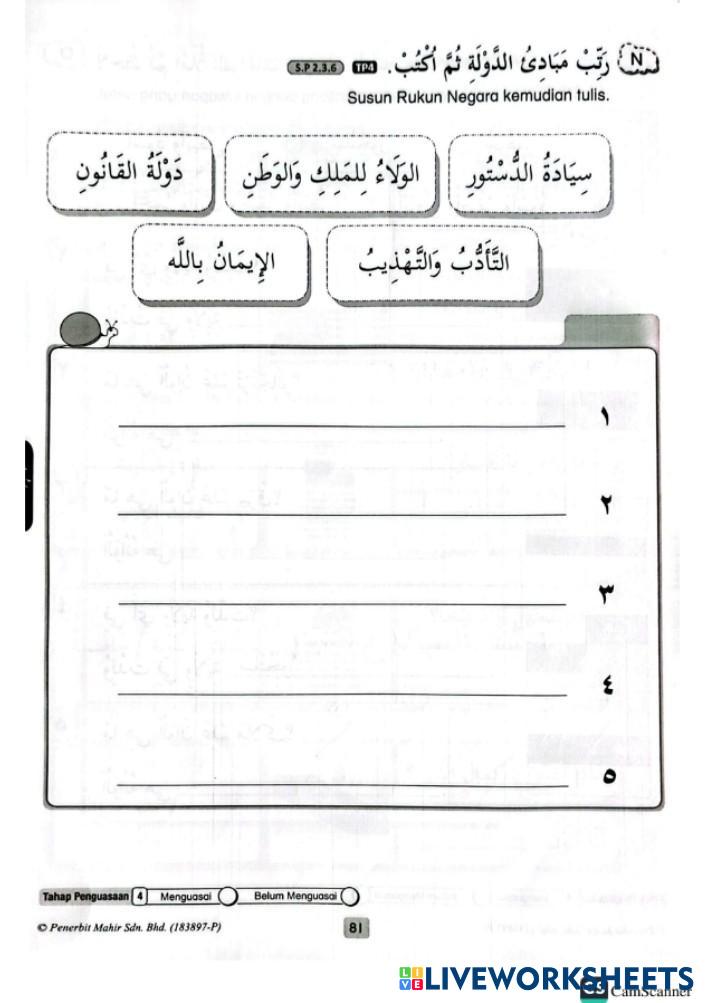 N رَتِّبْ مَبَادِئُ الدَّوْلَةِ ثُمَّ اُكْتُبْ. TP4 S.P 2.3.6
Susun Rukun Negara kemudian tulis.
سِيَادَةُ الدُّسْتُورِ
الوَلَاءُ لِلمَلِكِ وَالوَطَنِ
دَوْلَةُ القَانُونِ
التَّأَدُّبُ وَالتَّهْذِيبُ
الإِيمَانُ بِاللَّه
١
٢
٣
٤
٥
Tahap Penguasaan 4 Menguasai Belum Menguasai
© Penerbit Mahir Sdn. Bhd. (183897-P)
81
LIVE LIVEWORKSHEETS
CS CamScanner